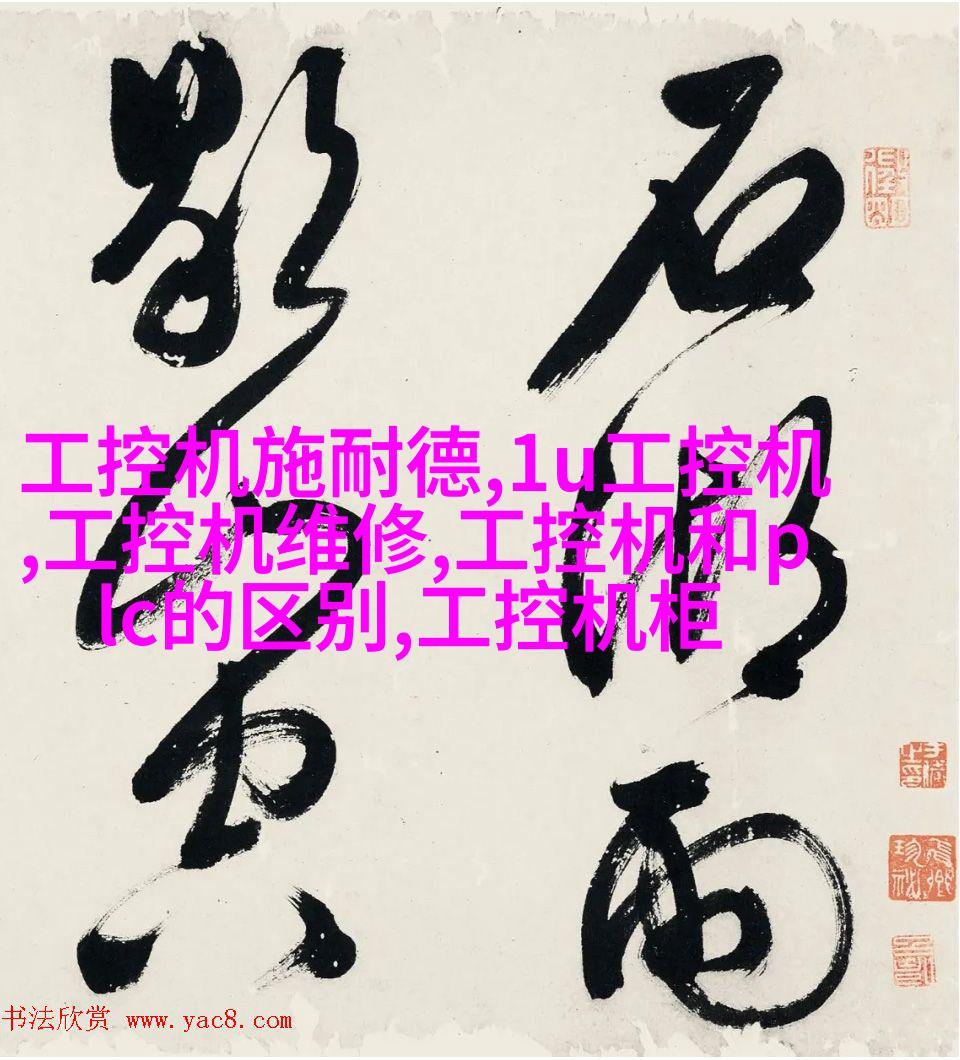 石湖雨
歇山空
工控机施耐德,1u工控机
,工控机维修,工控机和p
lc的区别,工控机柜
书法欣赏 www.yac8.com